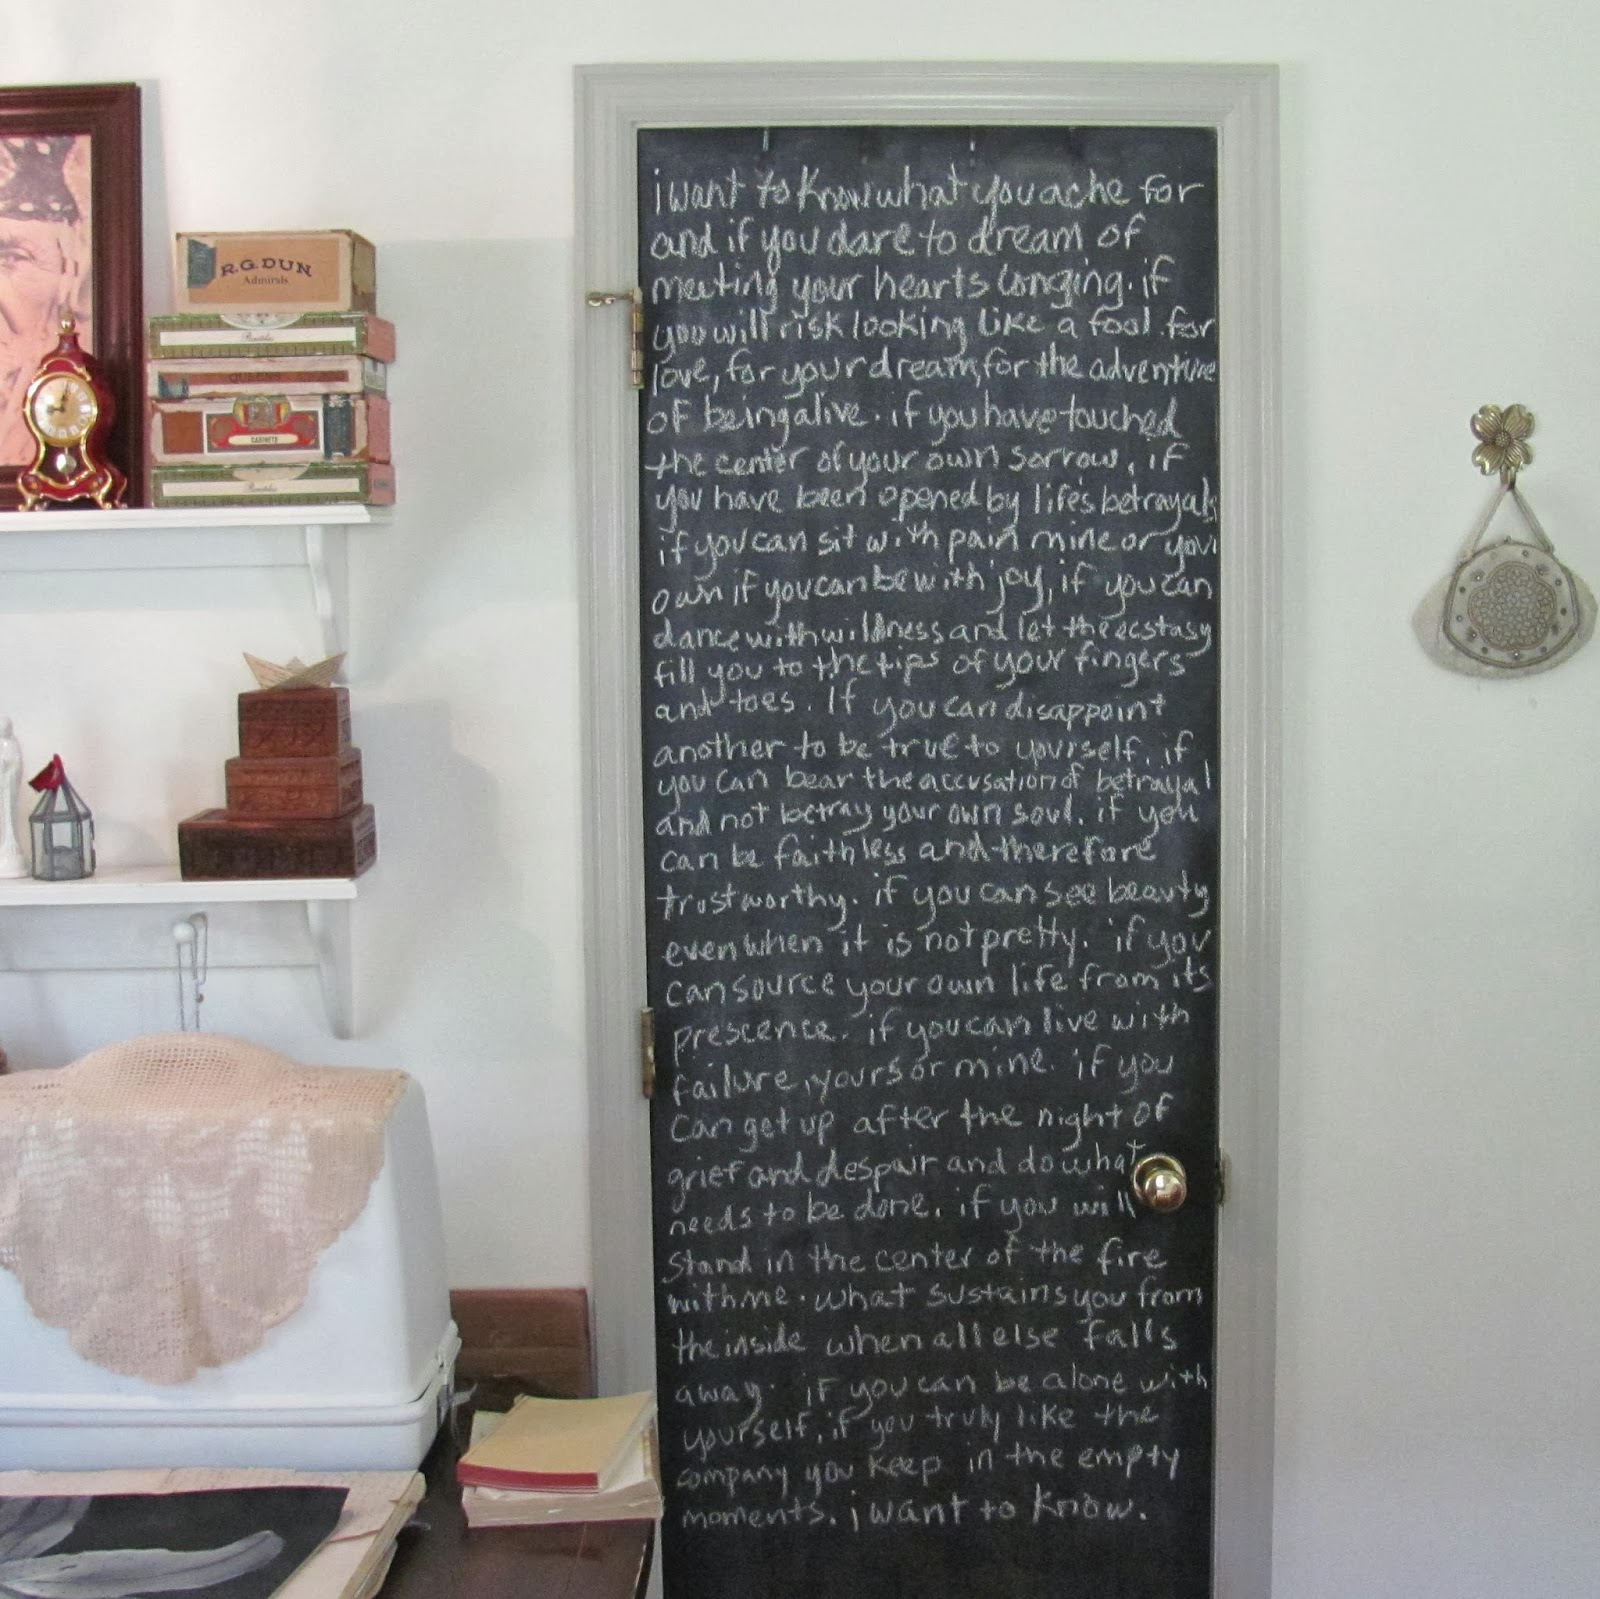 R.G.DUN
Admirals
CABINETS
i want to know what you ache for
and if you dare to dream of
meeting your hearts longing. if
you will risk looking like a fool for
love, for your dream, for the adventure
of being alive. if you have touched
the center of your own sorrow, if
you have been opened by life's betrayals
if you can sit with pain mine or your
own if you can be with joy, if you can
dance with wildness and let the ecstasy
fill you to the tips of your fingers
and toes. If you can disappoint
another to be true to yourself. if
you can bear the accusation of betrayal
and not betray your own soul. if you
can be faithless and therefore
trustworthy. if you can see beauty
even when it is not pretty. if you
can source your own life from its
prescence. if you can live with
failure, yours or mine. if you
can get up after the night of
grief and despair and do what
needs to be done. if you will
stand in the center of the fire
with me. what sustains you from
the inside when all else falls
away. if you can be alone with
yourself, if you truly like the
company you keep in the empty
moments. i want to know.